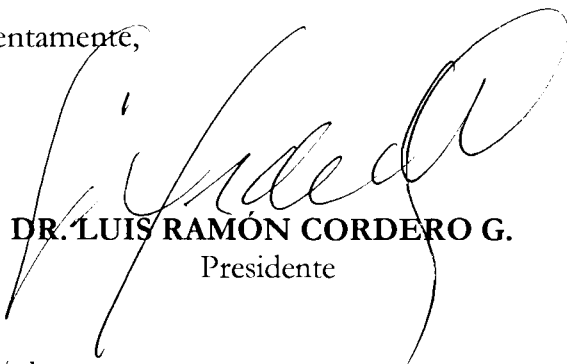 entamente,
DR. LUIS RAMÓN CORDERO G.
Presidente